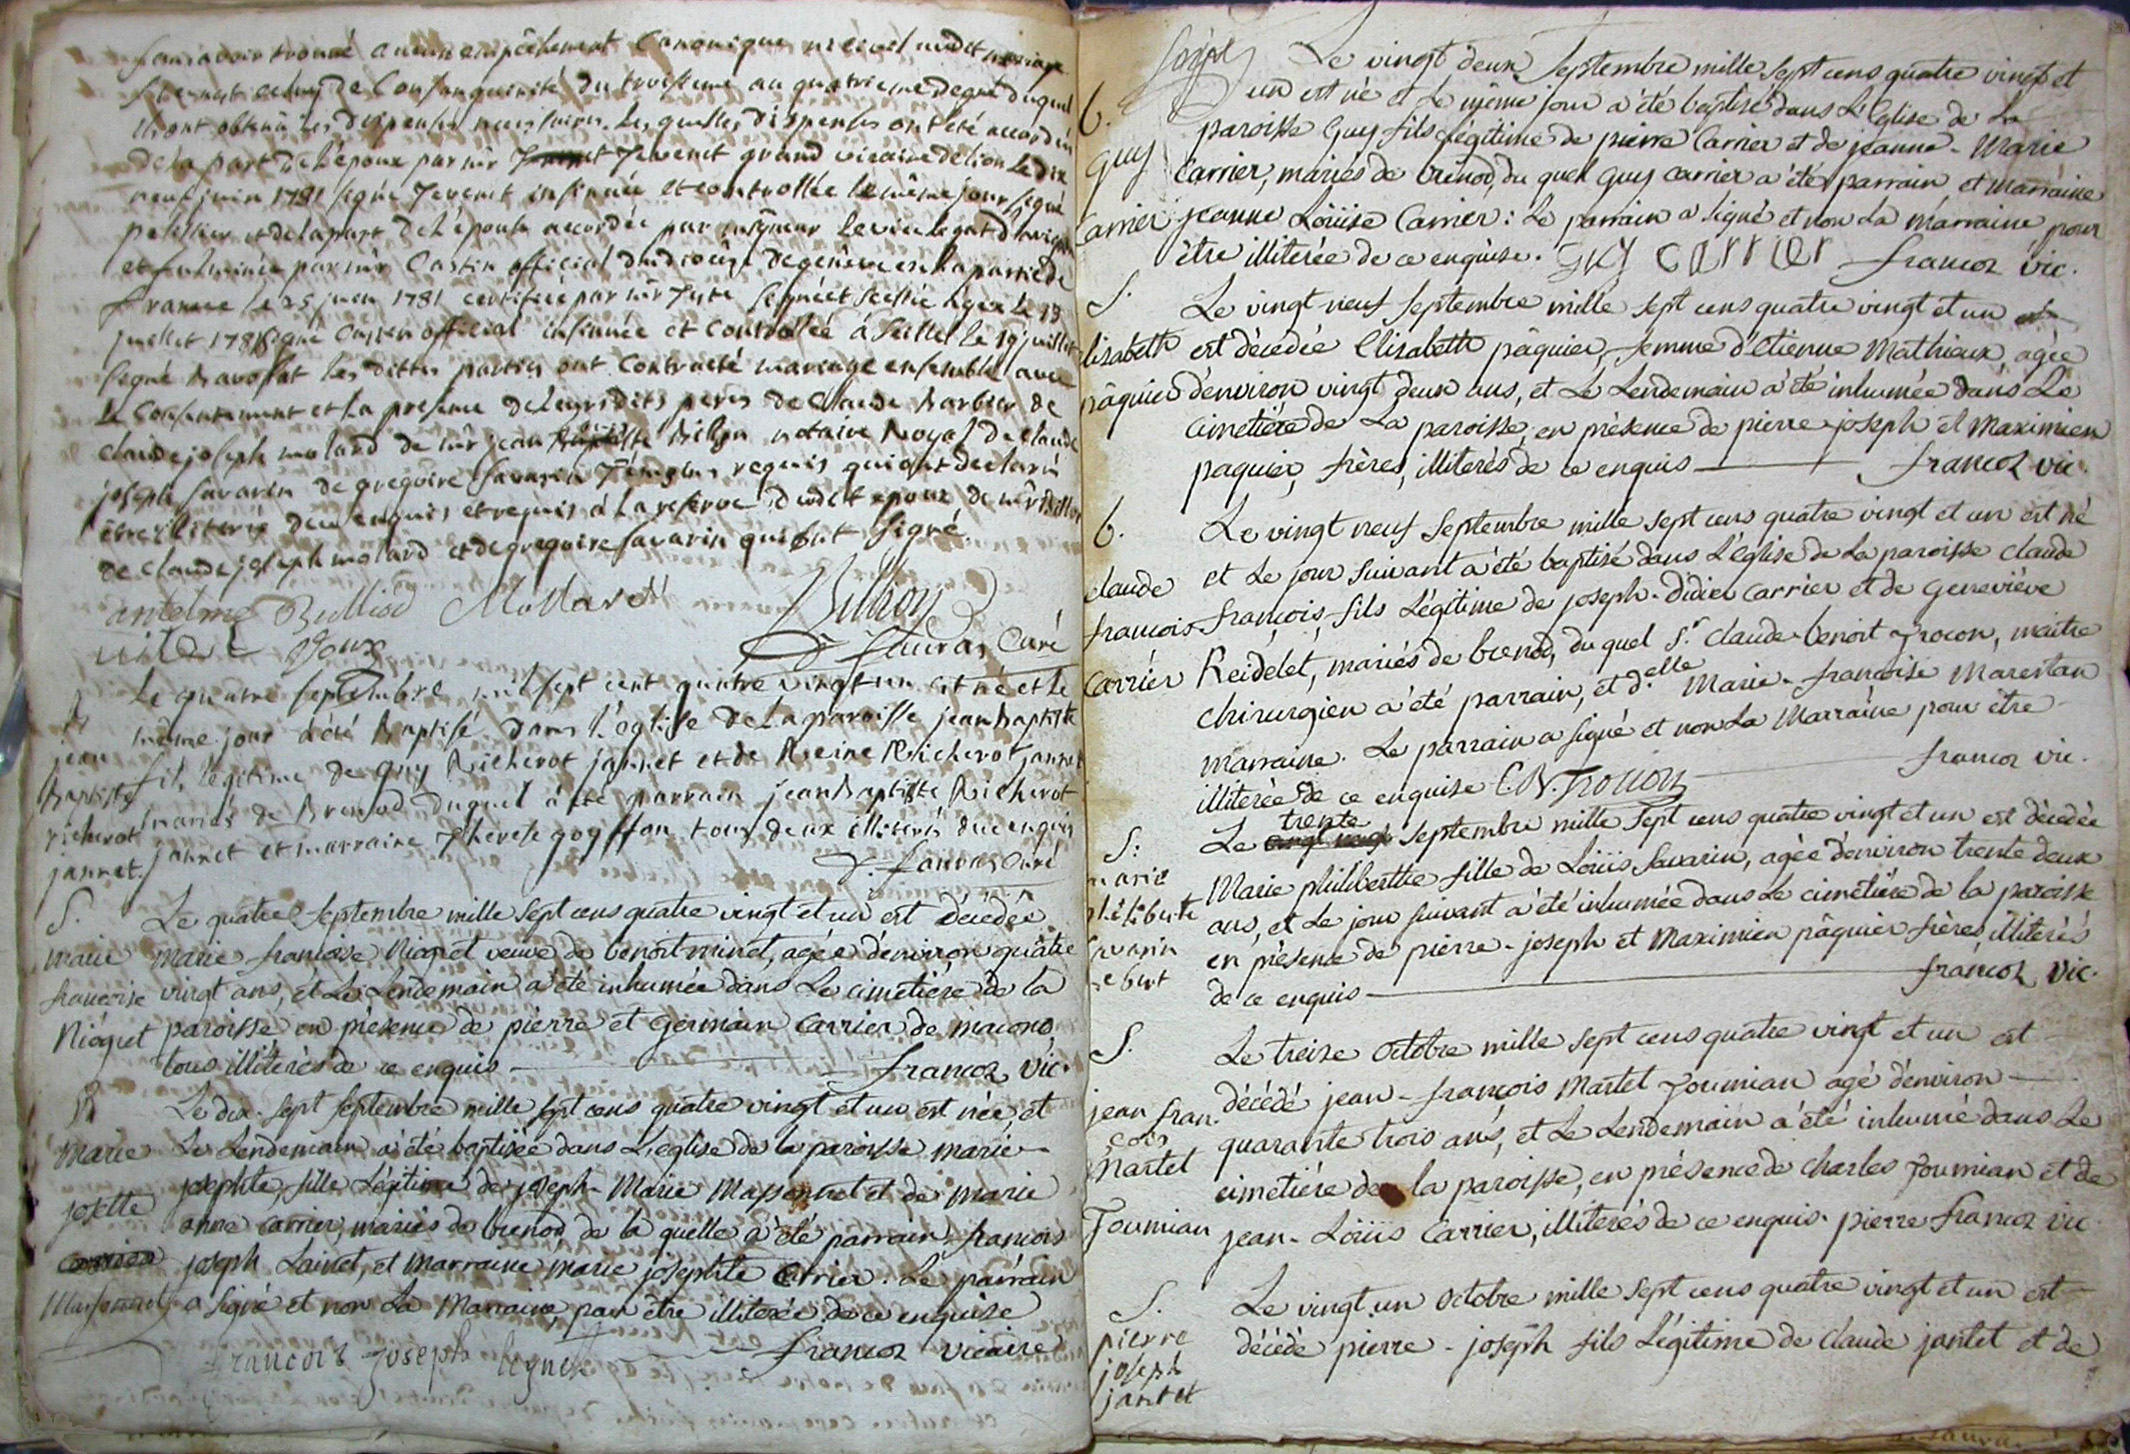 sans avoir trouvé aucun empêchement Canonique ni civil audit mariage
si ce n'est celuy de Consanguinité du troisieme au quatrieme degré duquel
ils ont obtenu les dispenses necessaires. Lesquelles dispenses ont été accordés
de la part de L'époux par mr Jevenet grand vicaire de lion Le dix
neuf juin 1781 signé Jevenet insinuée et controllée le même jour signé
et de la part de L'épouse accordée par Le vice legat d'avignon
et fulminée par mr Castin official du diocèse de genève en la partie de
france le 25 juin 1781 certifiée par mr signée et scellée à gex le 13
juillet 1781 signé official insinuée et Controllée à Seissel le 19 juillet
signé les dittes parties ont Contracté mariage ensemble avec
le Consentement et la presence de leursdits peres de Claude Barbier de
claude joseph molard de mr jean Baptiste Billion notaire Royal de claude
joseph savarin de gregoire savarin Témoins requis qui ont declaré
être illiterés de ce enquis et requis à la reserve dudit epoux de mr Billion
de claude joseph molard et de gregoire savarin qui ont signé.
antelme Bulliod Mollard Billion
D. fauvas Curé
Le quatre septembre mil sept cent quatre vingt un est né et le
même jour a été Baptisé dans l'église de la paroisse jean Baptiste
jean
fils légitime de guy Richerot jannet et de Reine Richerot jannet
Baptiste
mariés de Brenod duquel a été parrain jean Baptiste Richerot
richerot
jannet et marraine Therese goyffon tous deux illiterés de ce enquis
jannet.
D. fauvas Curé
S.
Le quatre septembre mille sept cens quatre vingt et un est décédée
marie
marie françoise Nioquet veuve de benoit minet, agée d'environ quatre
françoise
vingt ans, et Le Lendemain a été inhumée dans Le cimetière de la
Nioquet
paroisse, en présence de pierre et germain Carrier de macono,
tous illiterés de ce enquis
francoz vic.
B
Le dix-sept septembre mille sept cens quatre vingt et un est née, et
Marie
Le Lendemain a été baptisée dans L'eglise de la paroisse marie
josephte, fille Légitime de joseph-Marie Massonnet et de marie
josette
anne Carrier, mariés de brenod, de la quelle a été parrain françois
joseph Lainet, et marraine marie josephte Carrier. Le parrain
Massonnet
a signé et non La Marraine, pour être illiterée de ce enquise
francoz vicaire
francois joseph legnet
Le vingt deux Septembre mille sept cens quatre vingt et
b.
un est né et le même jour a été baptisé dans L'Eglise de La
paroisse Guy fils légitime de pierre Carrier et de jeanne-Marie
guy
Carrier, mariés de brenod, du quel Guy carrier a été parrain, et marraine
Carrier
jeanne Loüise Carrier : Le parrain a signé et non La marraine pour
être illiterée de ce enquise. GUY CArrier francoz vic.
S.
Le vingt neuf Septembre mille sept cens quatre vingt et un
lisabeth
est décédée Elisabeth pâquier, femme d'Etienne Mathieux, agée
pâquier
d'environ vingt deux ans, et Le Lendemain a été inhumée dans Le
cimetière de La paroisse, en présence de pierre-joseph et Maximien
paquier, frères, illiterés de ce enquis francoz vic.
b.
Le vingt neuf Septembre mille sept cens quatre vingt et un est né
et Le jour suivant a été baptisé dans L'église de La paroisse claude
claude
françois fils Légitime de joseph-didier Carrier et de Geneviève
francois
Reidelet, mariés de brenod, du quel S.r Claude-benoit Trocon, maitre
carrier
chirurgien a été parrain, et d.elle Marie-françoise Marestan
marraine. Le parrain a signé et non La Marraine pour être
illiterée de ce enquise C.B. Trocon francoz vic.
S:
Le trente Septembre mille sept cens quatre vingt et un est décédée
marie
Marie philiberthe fille de Loüis Savarin, agée d'environ trente deux
ans, et Le jour suivant a été inhumée dans Le cimetière de la paroisse
savarin
en présence de pierre-joseph et Maximien pâquier frères, illiterés
de ce enquis francoz vic.
S.
Le treize Octobre mille sept cens quatre vingt et un est
jean fran
décédé jean-françois Martet Joumian agé d'environ
çois
quarante trois ans, et Le Lendemain a été inhumé dans Le
Martet
cimetière de la paroisse, en présence de charles Joumian et de
Joumian
jean-Loüis Carrier, illiterés de ce enquis. pierre francoz vic.
S.
Le vingt un Octobre mille sept cens quatre vingt et un est
pierre
décédé pierre-joseph fils Légitime de Claude jantet et de
joseph
jantet